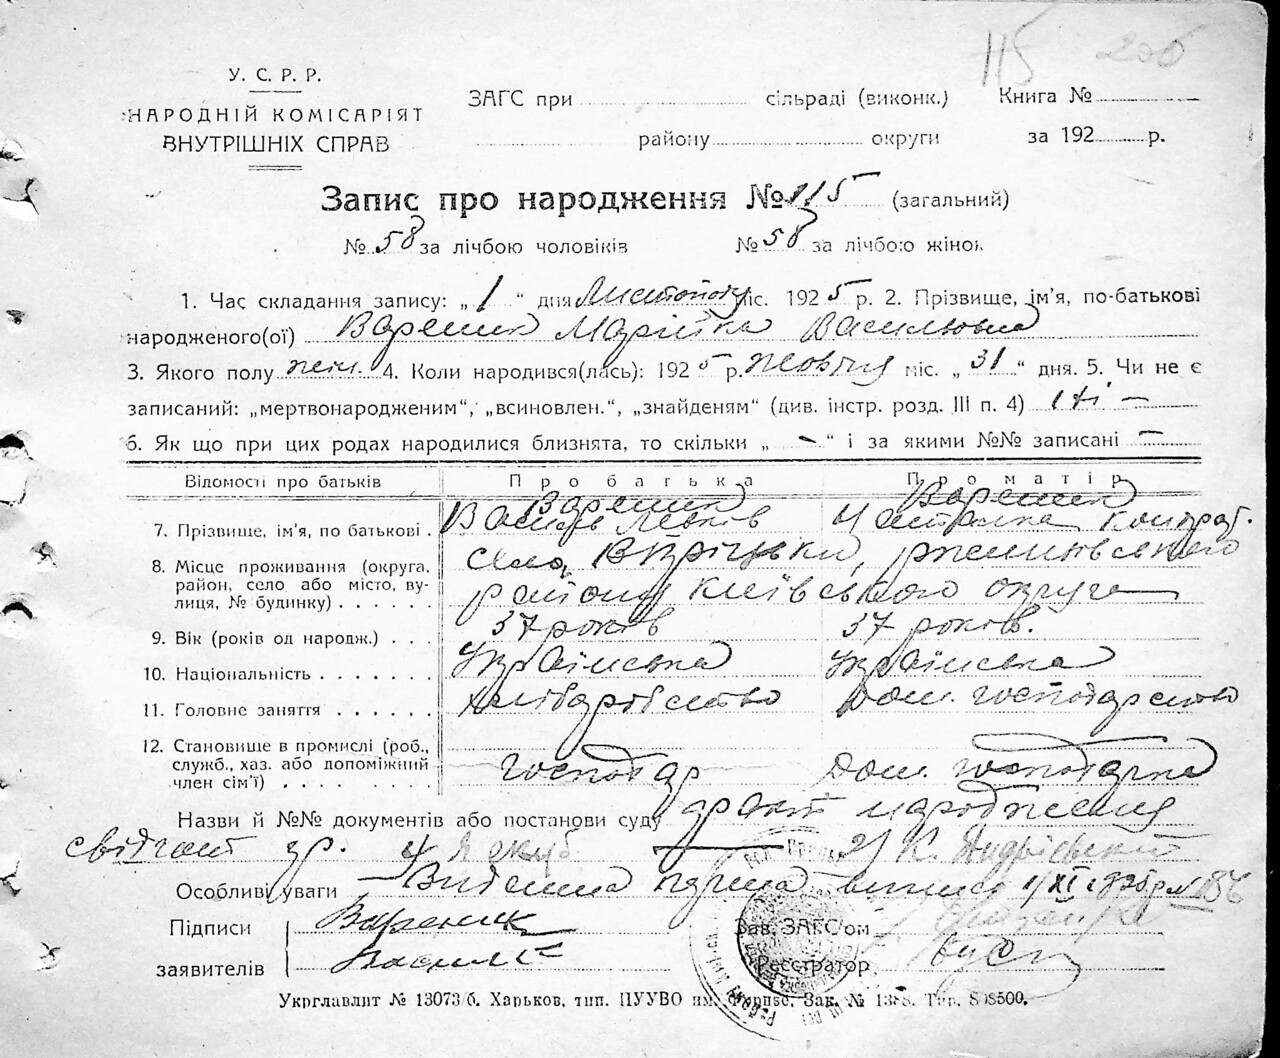 115
У. С. Р. Р.
НАРОДНІЙ КОМІСАРІЯТ
ВНУТРІШНІХ СПРАВ
ЗАГС при сільраді (виконк.) Книга №
району округи за 192 р.
Запис про народження № 115 (загальний)
№ 58 за лічбою чоловіків № 58 за лічбою жінок
1. Час складання запису: „ 1 “ дня Листопаду міс. 192 5 р. 2. Прізвище, ім'я, по-батькові
народженого(ої) Вареник Марійка Василювна
3. Якого полу жін. 4. Коли народився(лась): 192 5 р. жовтня міс. „ 31 “ дня. 5. Чи не є
записаний: „мертвонародженим“, „всиновлен.“, „знайденям“ (див. інстр. розд. III п. 4) —
6. Як що при цих родах народилися близнята, то скільки „ - “ і за якими №№ записані —
Відомості про батьків Про батька Про матір
Вареник Вареник
7. Прізвище, ім'я, по батькові . Василь Левків
8. Місце проживання (округа, село
район, село або місто, ву- району Київського округа
лиця, № будинку) . . . . .
9. Вік (років од народж.) . . . 37 років 37 років.
10. Національність . . . . . . . Українська Українська
11. Головне заняття . . . . . . хліборобство Дом. господарство
12. Становище в промислі (роб.,
служб., хаз. або допоміжний господар Дом. господарка
член сім'ї) . . . . . . . .
Назви й №№ документів або постанови суду факт народження
свідчат гр. 2) К.
Особливі уваги — Видана перша 1/XI 1925 р. № 186
Підписи Вареник Зав. ЗАГС'ом
заявителів Василь Реєстратор
Укрглавліт № 13073/б. Харьков, тип. ПУУВО им. Фрунзе. Зак. № 1388. Тир. 808500.